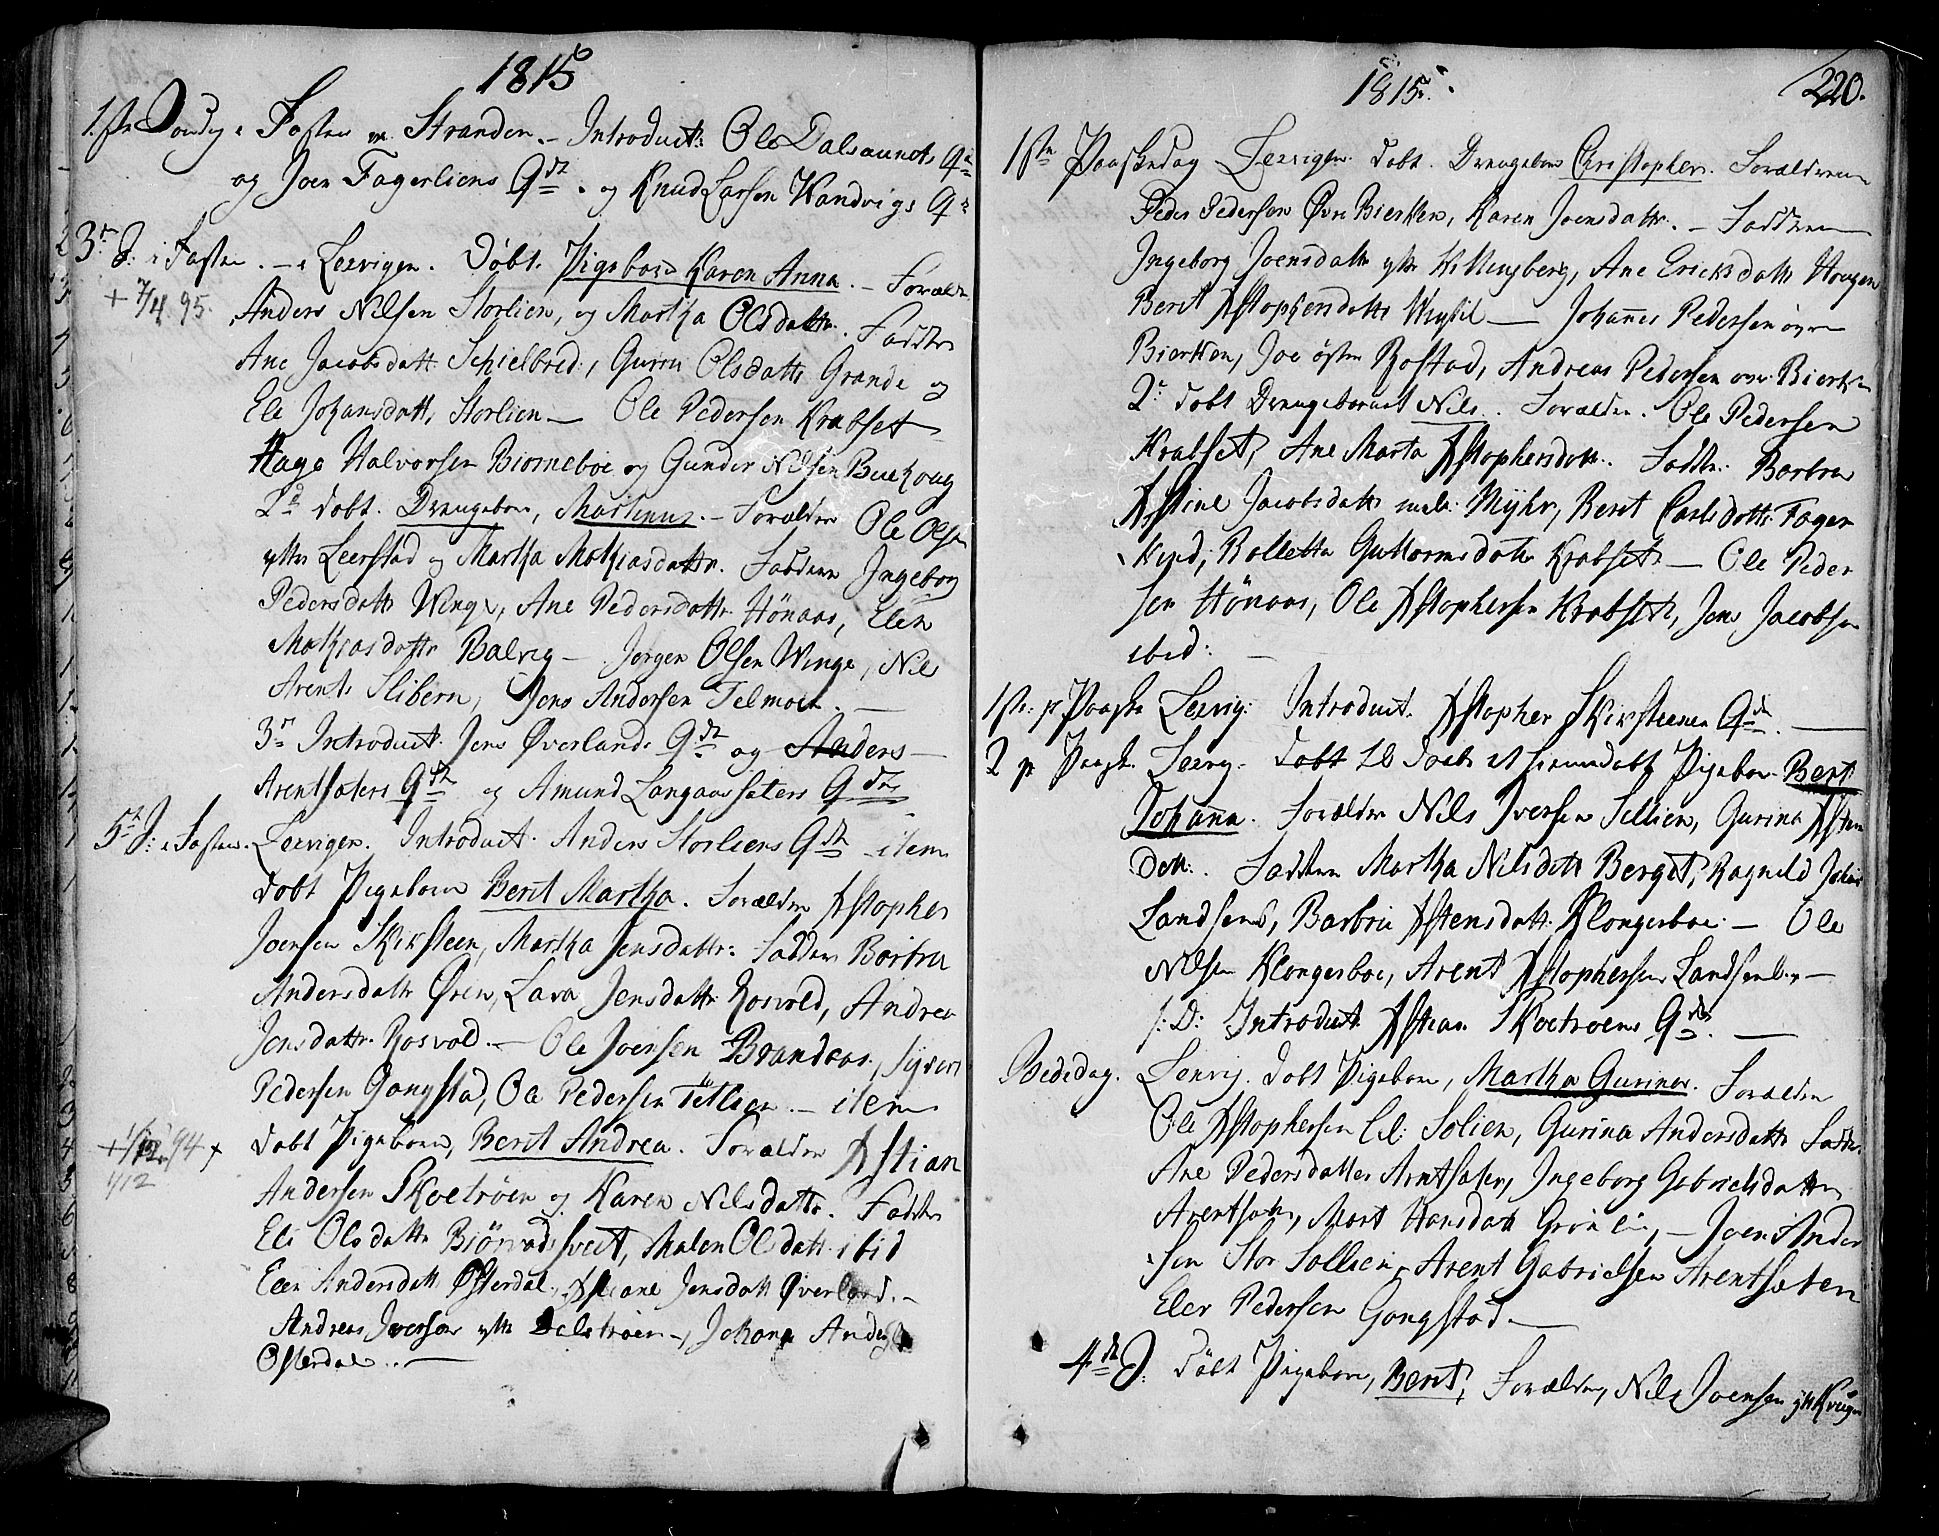 1815
1ste Søndag i Fasten paa Stranden. – Introduct: Ole Dalsaunets Qe
og Joen Fagerliens Qde. og Knud Larsen Wandvigs Qe
3de S: i Fasten. – i Leervigen. Døbt. Pigebarn Karen Anna. – Forældre
+ 7/4. 95.
Anders Nilsen Storlien, og Martha Olsdattr. Faddre
Ane Jacobsdatt: Schielbred, Guru Olsdattr Grande og
Eli Johansdatt, Storlien – Ole Pedersen Krabset
Hage Halvorsen Biørneboe og Gunder Nilsen Buehoug
2de Døbt. Drengebarn, Martinus. – Forældre Ole Olsen
ytter Leerstad og Martha Mathiasdattr. Faddere Ingeborg
Pedersdattr Winge, Ane Pedersdattr Hönaas, Elen
Mathiasdattr Balvig – Jørgen Olsen Winge, Nils
Arents Slibern, Jens Andersen Telmoen. –
3de Introduct. Jens Øverlands Qde og Anders –
Arentsæters Qde og Amund Langaassæters Qde
5te S: i Fasten. Leervigen. Introduct. Anders Storliens Qde – item
Døbt Pigebarn Berit Martha. Forældre Xstopher
Joensen Skirsteen, Martha Jensdattr: Faddere Barbra
Andersdattr Øren, Lava Jensdattr Rosvold, Andrea
Jensdattr. Rosvold. – Ole Joensen Brandaas, Syvert
Pedersen Gongstad, Ole Pedersen Tetlien. – item
+ 1/12. 94 +
1/12
Døbt Pigebarn, Berit Andrea. Forældre Xstian
Andersen Skoetrøen og Karen Nilsdattr. Faddre
Eli Olsdattr Biörvadsveet, Malen Olsdatt. ibid
Elen Andersdatt Østerdal, Xstiane Jensdatt Øverland. –
Andreas Iversen ytter Delstrøen –, Johan Anders
Osterdal. –
1815. 220.
1ste Paaskedag Leervigen. Døbt. Drengebarn Christopher. Forældrene
Peder Pedersen Øvre Bierken, Karen Joensdattr. – Faddrene
Ingeborg Joensdattr ytter Hillensberg, Ane Ericksdattr Hougen
Berit Xstophersdattr – Johannes Pedersen øvre
Bierken, Joe østre Rostad, Andreas Pedersen øvre Bierken
2de Døbt Drengebarnet Nils. Forældre. Ole Pedersen
Krabset, Ane Marta Xstophersdattr. Faddre: Barbra
Xstine Jacobsdattr Myhr, Berit Carlsdattr: Fager
hyed, Rolletta Guttormsdattr Krabset – Ole Peder
sen Hönaas, Ole Xstophersen Krabset, Jens Jacobsen
ibid: –
1ste p Paaske Leervig: Introduct. Xstopher Skirsteens Qde. –
2 p Paaske Leervig. Døbt hiemdøbt Pigebarn Berit
Johanna. Forældre Nils Iversen Sellien, Gurina Xsten
datt: Faddere Martha Nilsdatt Berget, Ragnild Johans
Landsems, Barbru Xstensdatt. Klongerboe – Ole
Nilsen Klongerboe, Arent Xstophersen Landsem. –
s: D: Introduct. Xstian Skoetroens Qde. –
Bededag. Leervig. Døbt Pigebarn, Martha Gurina. Forældre
Ole Xstophersen Lil: Solien, Gurina Andersdattr Faddr:
Ane Pedersdatter Arntsæter, Ingeborg Gabrielsdattr
Arentsætr, Marit Hansdatt Grønlie, – Joen Ander
sen Stor Sollien, Arent Gabrielsen Arentsæter
Eler Pedersen Gongstad –
4de S. Døbt Pigebarn, Berit, Forældre, Nils Joensen ytr